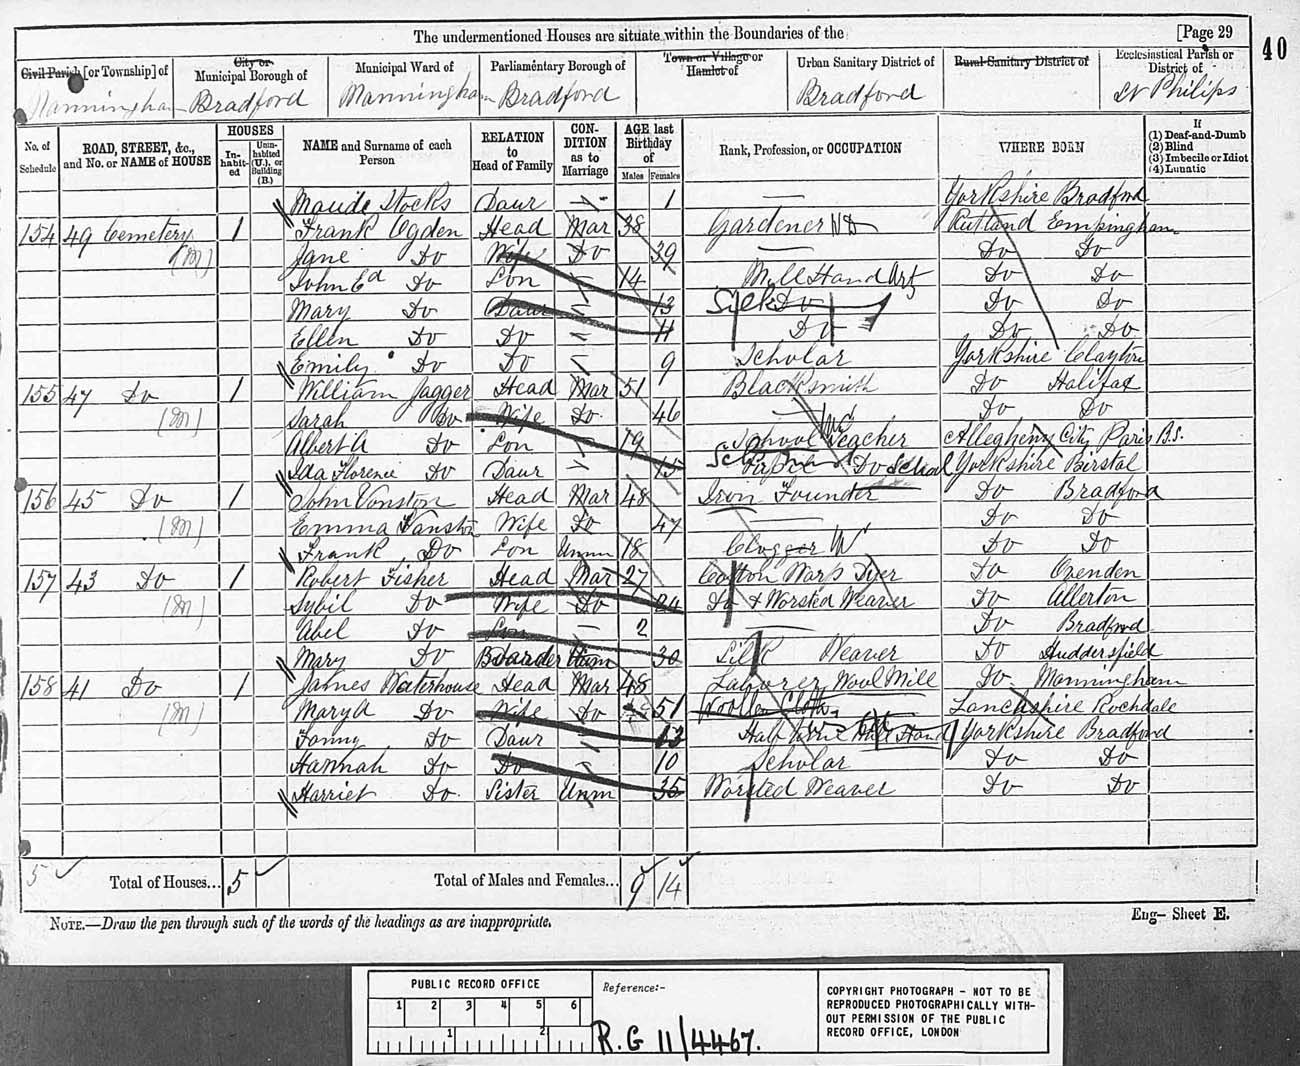 The undermentioned Houses are situate within the Boundaries of the [Page 29
40
Civil Parish [or Township] of City or Municipal Borough of Municipal Ward of Parliamentary Borough of Town or Village or Hamlet of Urban Sanitary District of Rural Sanitary District of Ecclesiastical Parish or District of
Manningham Bradford Manningham Bradford Bradford St Philips
No. of Schedule ROAD, STREET, &c., and No. or NAME of HOUSE HOUSES In-habit-ed Unin-habited (U.), or Building (B.) NAME and Surname of each Person RELATION to Head of Family CON-DITION as to Marriage AGE last Birthday of Males Females Rank, Profession, or OCCUPATION WHERE BORN If (1) Deaf-and-Dumb (2) Blind (3) Imbecile or Idiot (4) Lunatic
Maude Stocks Daur 1 Yorkshire Bradford
154 49 Cemetery 1 Frank Ogden Head Mar 38 Gardener ND Rutland Empingham
Jane Do Wife Do 39 Do Do
John Ed Do Son 14 Mill Hand Do Do
Mary Do Daur 13 Silk Do Do Do
Ellen Do Do 11 Do Do Do
Emily Do Do 9 Scholar Yorkshire Clayton
155 47 Do 1 William Jagger Head Mar 51 Blacksmith Do Halifax
Sarah Do Wife Do 46 Do Do
Albert A Do Son 19 School Teacher Allegheny City Paris B.S.
Ida Florence Do Daur 15 Do School Yorkshire Birstal
156 45 Do 1 John Vonston Head Mar 48 Iron Founder Do Bradford
Emma Vanston Wife Do 47 Do Do
Frank Do Son Unm 18 Clogger Do Do
157 43 Do 1 Robert Fisher Head Mar 27 Cotton Warp Dyer Do Ovenden
Sybil Do Wife Do 24 Do & Worsted Weaver Do Allerton
Abel Do Son 2 Do Bradford
Mary Do Boarder Unm 30 Silk Weaver Do Huddersfield
158 41 Do 1 James Waterhouse Head Mar 48 Laborer Wool Mill Do Manningham
Mary A Do Wife Do 51 Woollen Lancashire Rochdale
Fanny Do Daur 13 Half Time Mill Hand Yorkshire Bradford
Hannah Do Do 10 Scholar Do Do
Harriet Do Sister Unm 35 Worsted Weaver Do Do
5 Total of Houses... 5 Total of Males and Females... 9 14
NOTE.—Draw the pen through such of the words of the headings as are inappropriate.
Eng— Sheet E.
PUBLIC RECORD OFFICE
1 2 3 4 5 6
1 2
Reference:-
R.G 11/4467.
COPYRIGHT PHOTOGRAPH - NOT TO BE
REPRODUCED PHOTOGRAPHICALLY WITH-
OUT PERMISSION OF THE PUBLIC
RECORD OFFICE, LONDON